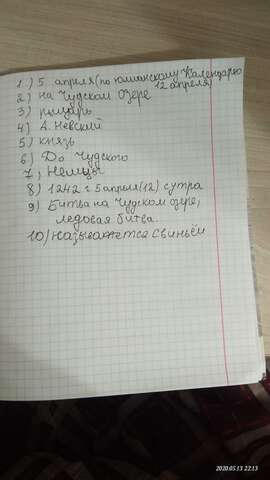 1.) 5 апреля(по юлианскому Календарю
12 апреля)
2) на Чудском Озере
3) рыцарь
4) А. Невский
5) князь
6) До Чудского
7, Немцы
8) 1242 г. 5 апреля(12) с утра
9) Битва на Чудском озере,
ледовая битва.
10) называется свиньёй
2020.05.13 22:13